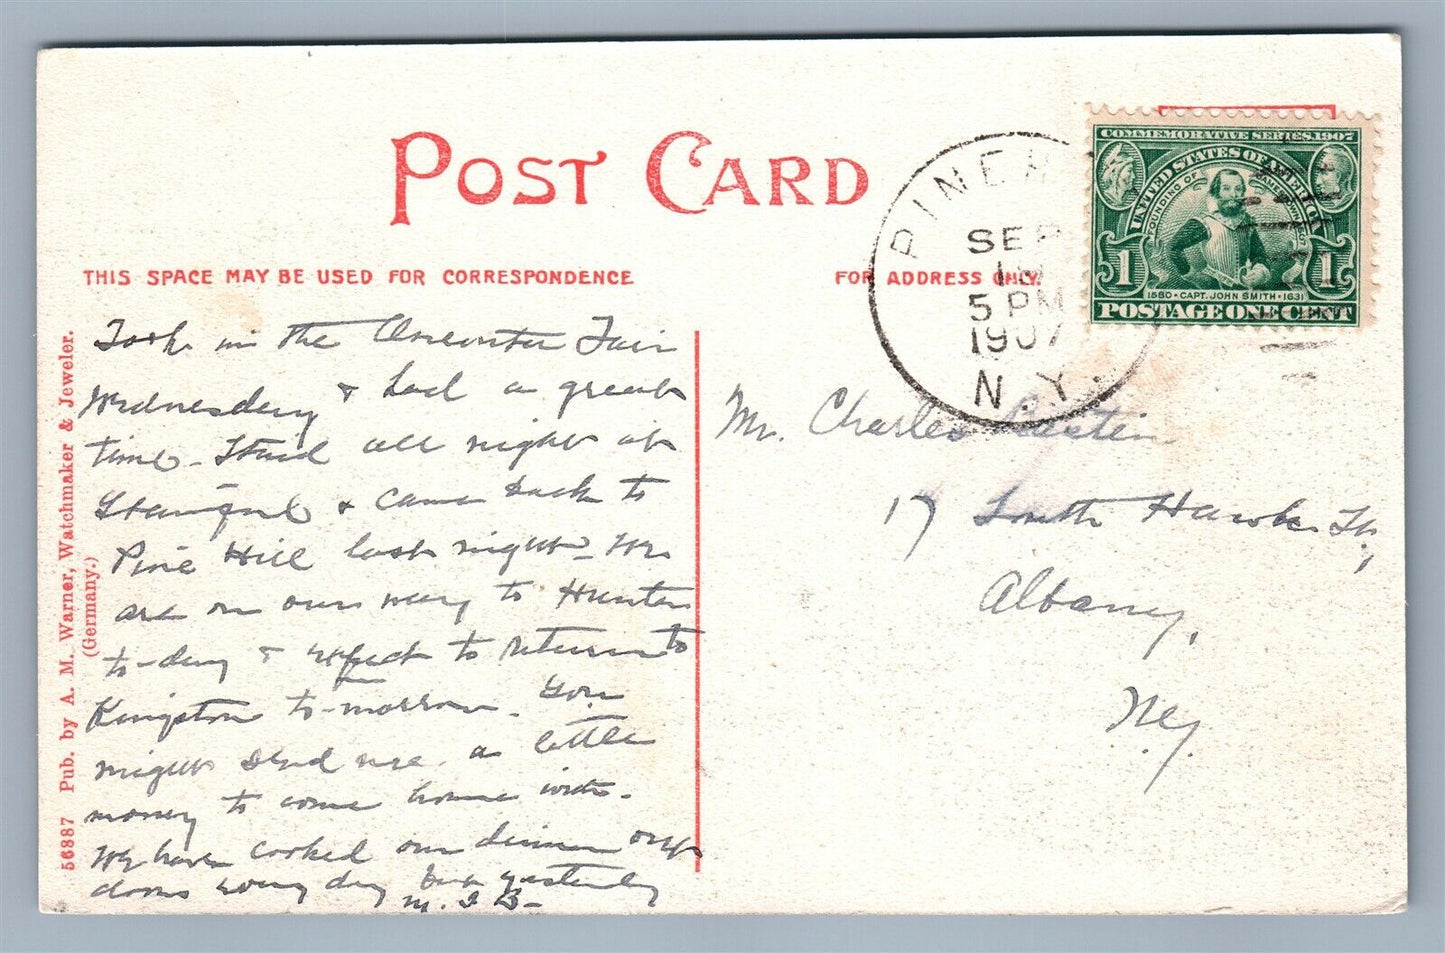 POST CARD
THIS SPACE MAY BE USED FOR CORRESPONDENCE
FOR ADDRESS ONLY.
56887 Pub. by A. M. Warner, Watchmaker & Jeweler.
(Germany.)
PINE
SEP
5 PM
1907
N.Y.
COMMEMORATIVE SERIES, 1907
UNITED STATES OF AMERICA
FOUNDING OF JAMESTOWN
1 1
1580 · CAPT. JOHN SMITH · 1631
POSTAGE ONE CENT
Took in the Oneonta Fair
Wednesday & had a great
time - Staid all night at
& came back to
Pine Hill last night - We
are on our way to Hunter
to-day & expect to return to
Kingston to-morrow. You
might send me a little
money to come home with.
We have cooked our dinner out
doors every day but yesterday
M. I. B -
Mr. Charles
17 South Hawk St.,
Albany,
N.Y.